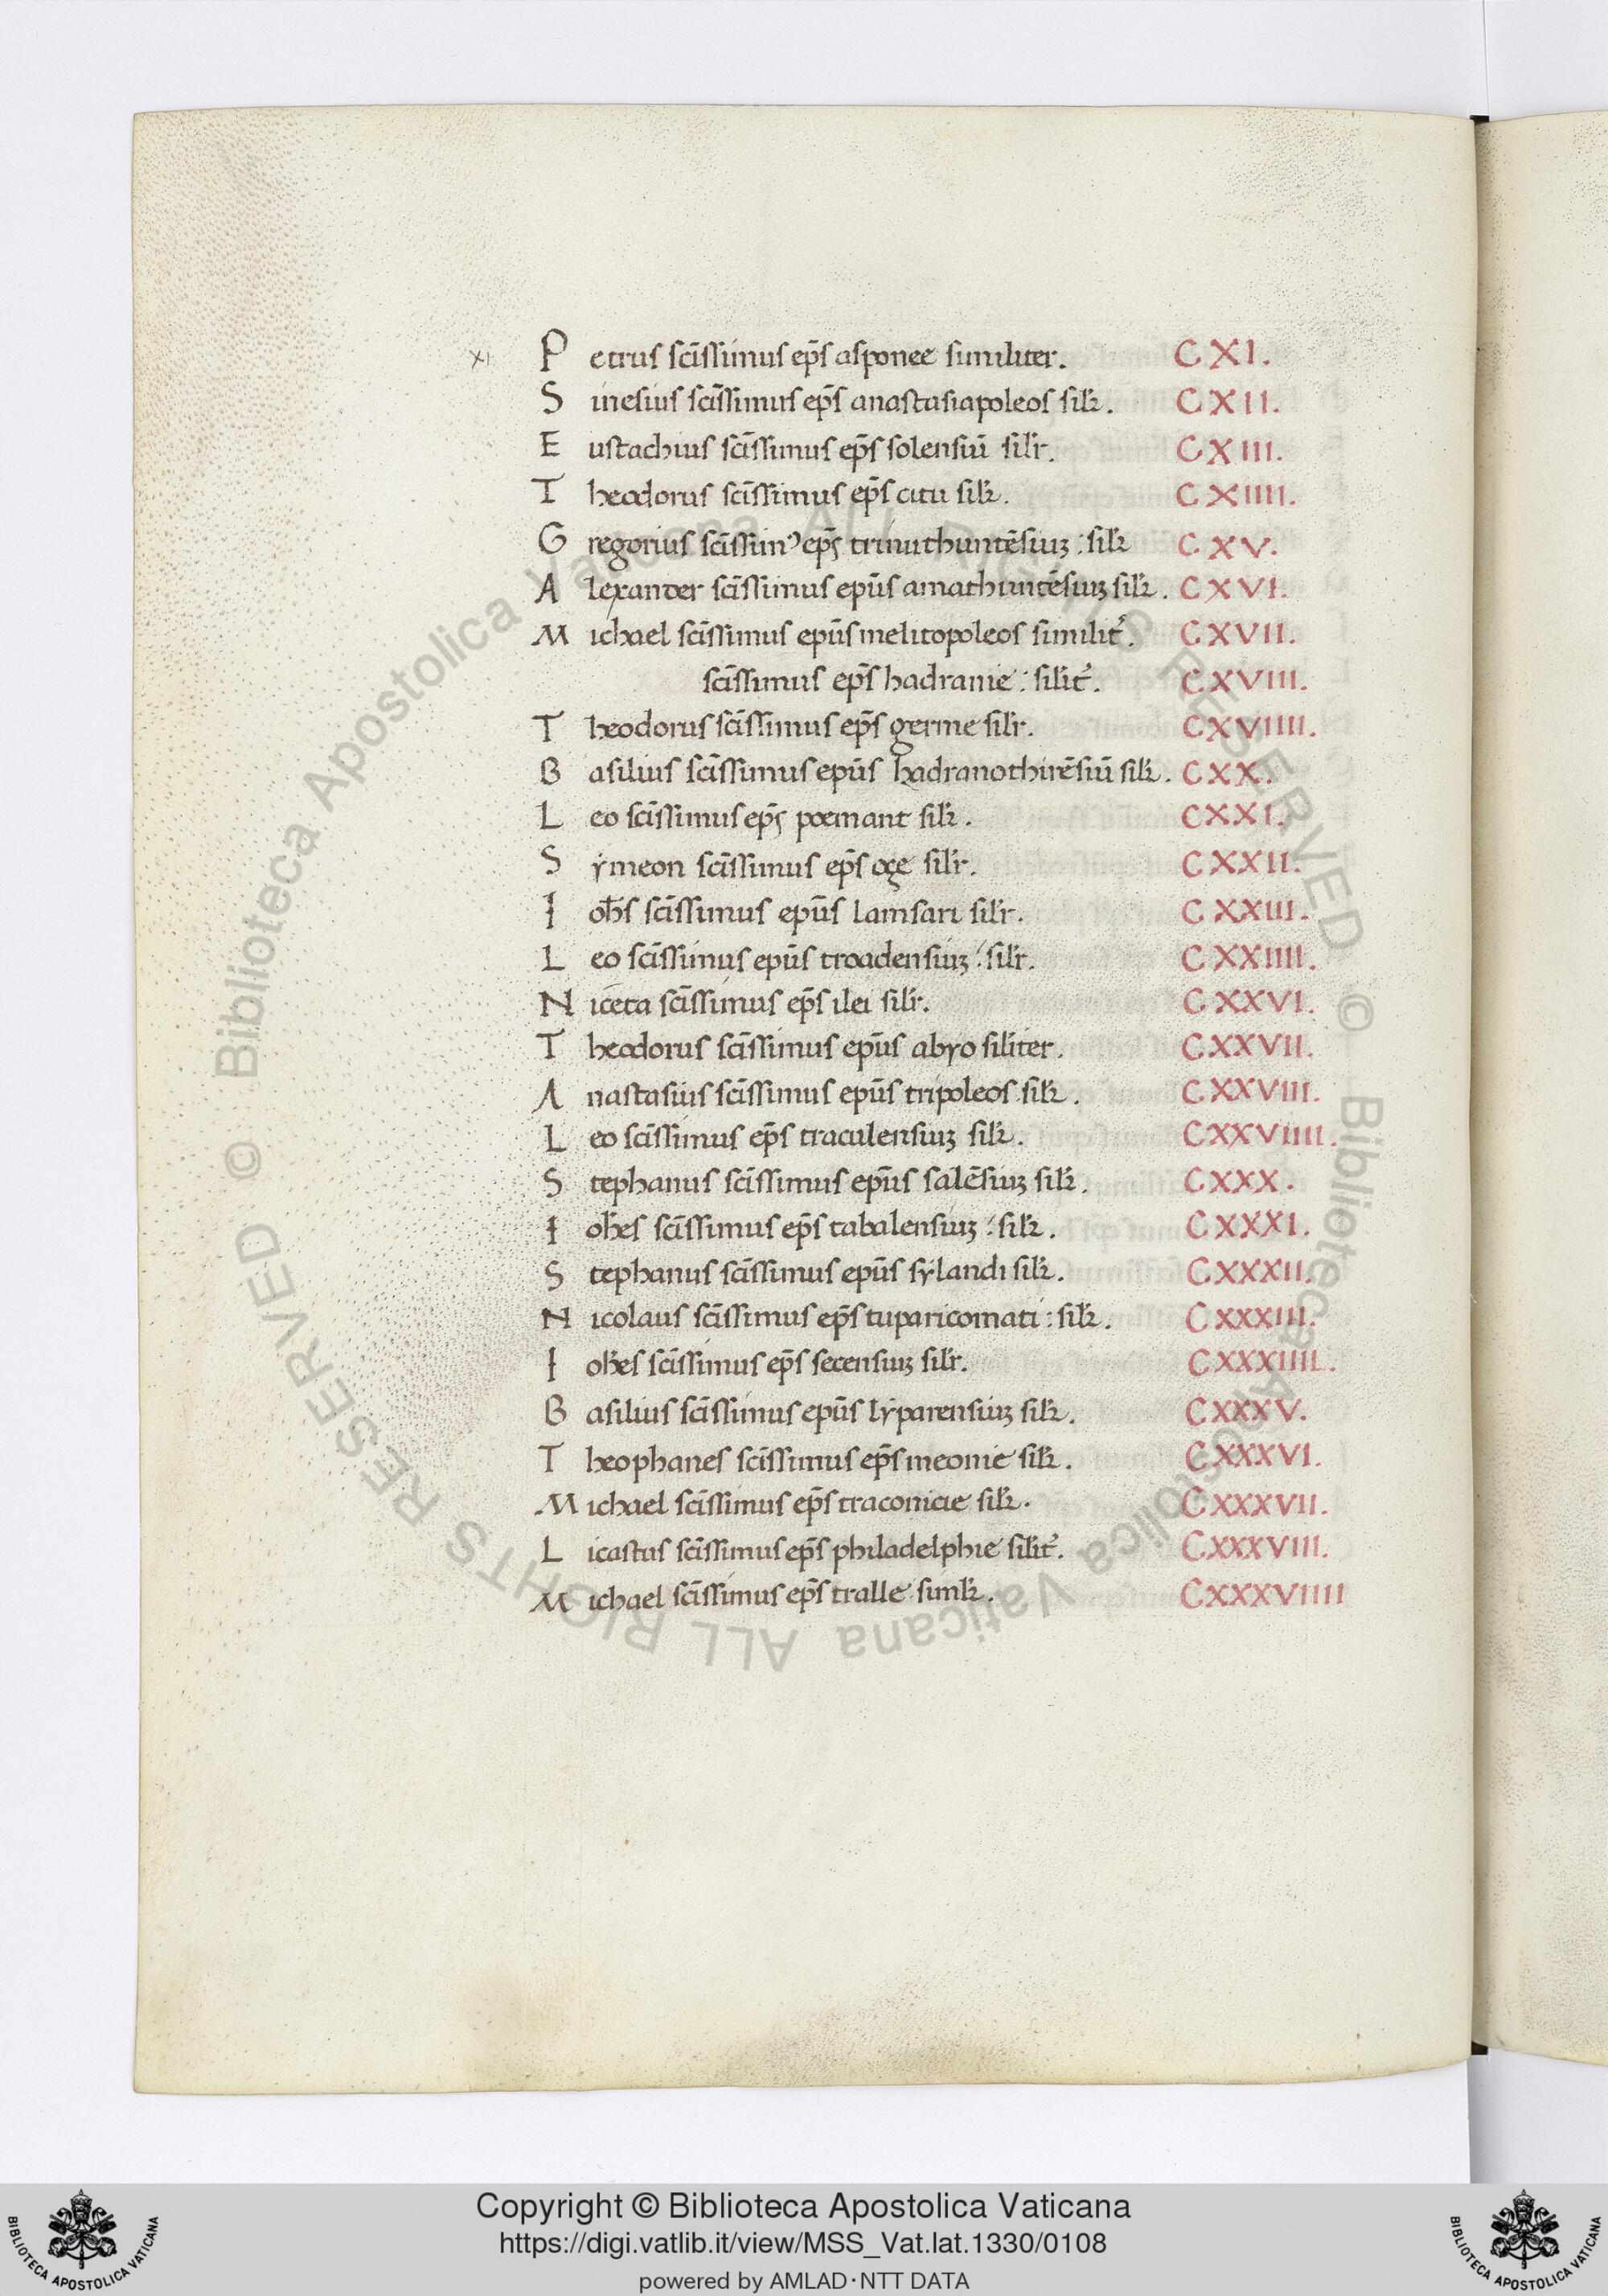 XI Petrus scīssimus ep̄s asponee similiter. CXI.
Sinesius scīssimus ep̄s anastasiapoleos sil̄r. CXII.
Eustachius scīssimus ep̄s solensiū sil̄r. CXIII.
Theodorus scīssimus ep̄s citu sil̄r. CXIIII.
Gregorius scīssimꝰ ep̄s trinuthuntēsiuꝫ : sil̄r CXV.
Alexander scīssimus epūs amathuntēsiuꝫ sil̄r. CXVI.
Michael scīssimus epūs melitopoleos similit̄. CXVII.
scīssimus ep̄s hadranie : silit̄. CXVIII.
Theodorus scīssimus ep̄s germe sil̄r. CXVIIII.
Basilius scīssimus epūs hadranothirēsiū sil̄r. CXX.
Leo scīssimus ep̄s poemant sil̄r. CXXI.
Sẏmeon scīssimus ep̄s oge sil̄r. CXXII.
Ioh̄s scīssimus epūs lamsari sil̄r. CXXIII.
Leo scīssimus epūs troadensiuꝫ : sil̄r. CXXIIII.
Niceta scīssimus ep̄s ilei sil̄r. CXXVI.
Theodorus scīssimus epūs abẏo siliter. CXXVII.
Anastasius scīssimus epūs tripoleos sil̄r. CXXVIII.
Leo scīssimus ep̄s traculensiuꝫ sil̄r. CXXVIIII.
Stephanus scīssimus epūs salēsiuꝫ sil̄r. CXXX.
Ioh̄es scīssimus ep̄s tabalensiuꝫ : sil̄r. CXXXI.
Stephanus scīssimus epūs sẏlandi sil̄r. CXXXII.
Nicolaus scīssimus ep̄s tuparicomati : sil̄r. CXXXIII.
Ioh̄es scīssimus ep̄s secensiuꝫ sil̄r. CXXXIIII.
Basilius scīssimus epūs lẏparensiuꝫ sil̄r. CXXXV.
Theophanes scīssimus ep̄s meonie sil̄r. CXXXVI.
Michael scīssimus ep̄s traconicie sil̄r. CXXXVII.
Licastus scīssimus ep̄s philadelphie silit̄. CXXXVIII.
Michael scīssimus ep̄s tralle simil̄r. CXXXVIIII
© Biblioteca Apostolica Vaticana ALL RIGHTS RESERVED © Biblioteca Apostolica Vaticana ALL RIGHTS RESERVED
BIBLIOTECA APOSTOLICA VATICANA
Copyright © Biblioteca Apostolica Vaticana
https://digi.vatlib.it/view/MSS_Vat.lat.1330/0108
powered by AMLAD·NTT DATA
BIBLIOTECA APOSTOLICA VATICANA